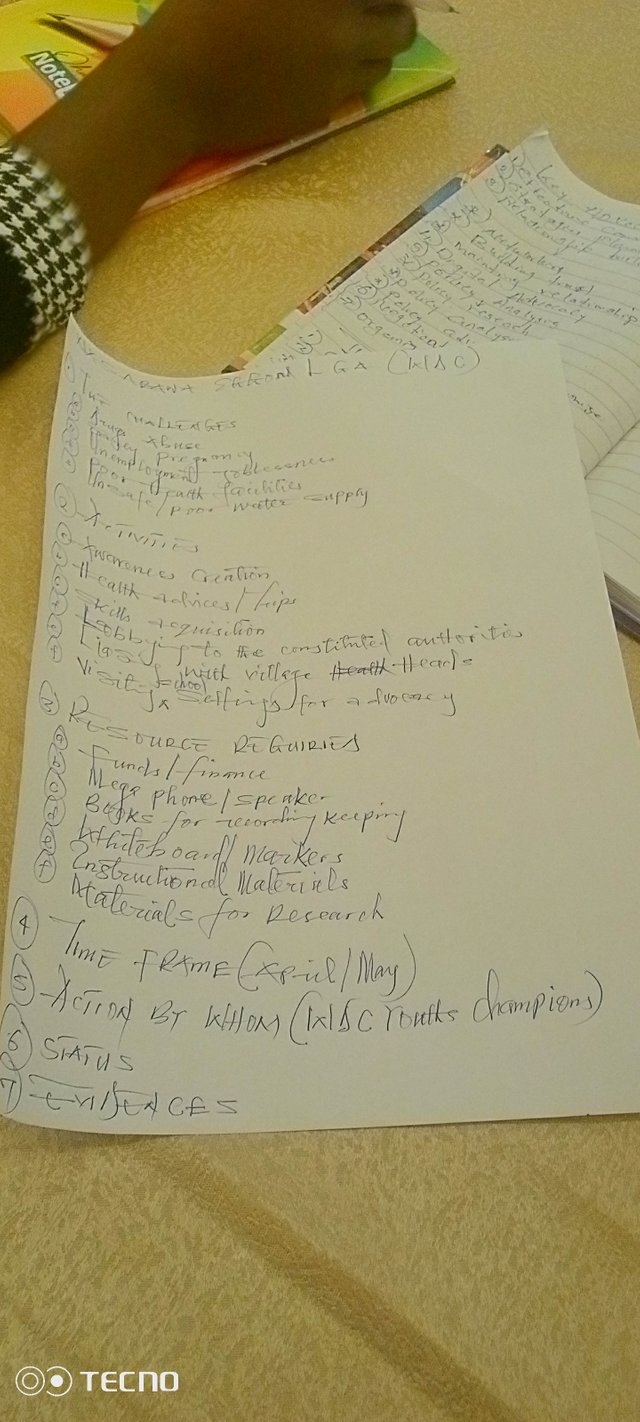 Note
Accounting
Building trust
Maintaing relationship
Digital Advocacy
Policy & Analysis
Policy research
Policy analysis
LGA (WDC)
① THE CHALLENGES
Drugs Abuse
Pregnancy
Unemployment joblessness
Poor Health facilities
Unsafe/poor water supply
② ACTIVITIES
Awareness Creation
Health advices/tips
Skills acquisition
Lobbying to the constituted authorities
Liasing with village Heads
Visiting school settings for advocacy
③ RESOURCE REQUIRIES
Funds/finance
Mega phone/speaker
Books for recording keeping
Whiteboard/Markers
Instructional Materials
Materials for Research
④ TIME FRAME (April/May)
⑤ ACTION BY WHOM (WDC Youths Champions)
⑥ STATUS
⑦ EVIDENCES
TECNO